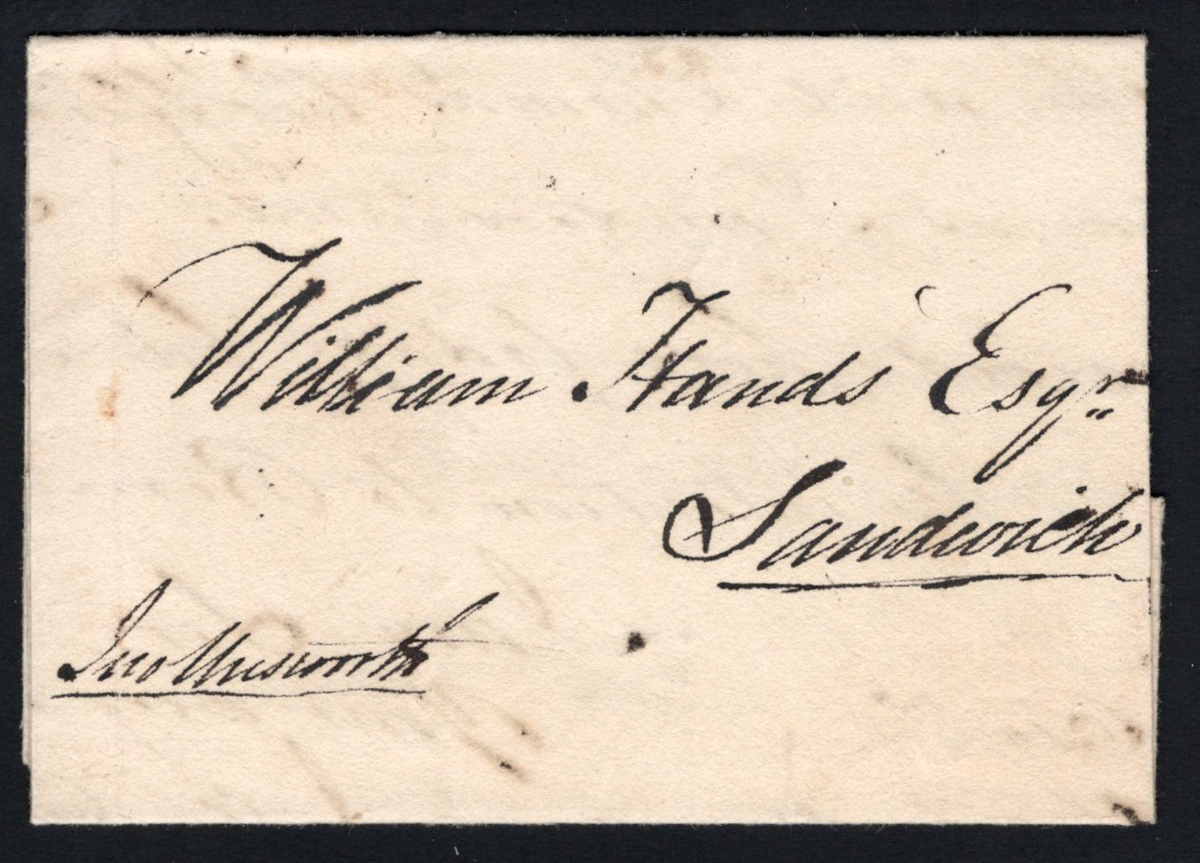 William Hands Esqr
Sandwich
Jno Unsworth